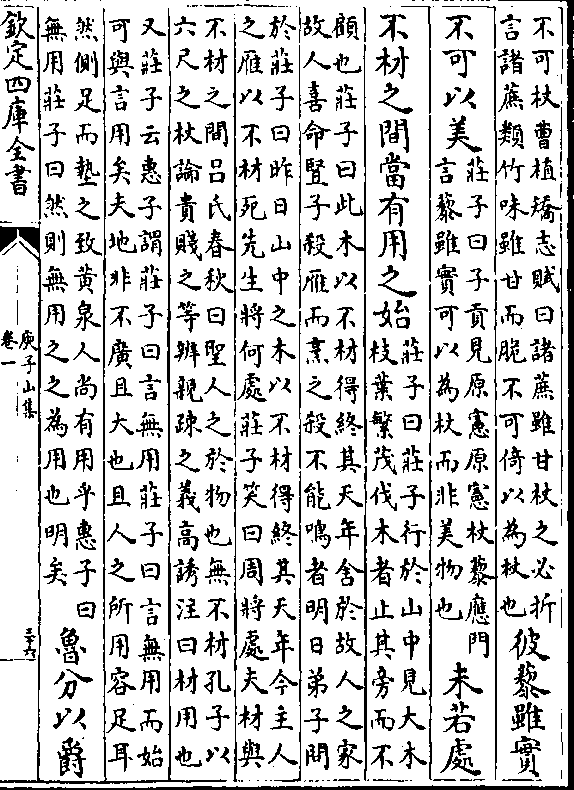 不可杖曹植矯志賦曰諸蔗雖甘杖之必折
言諸蔗類竹味雖甘而脆不可倚以為杖也
彼藜雖實
不可以美
莊子曰子貢見原憲原憲杖藜應門
言藜雖實可以為杖而非美物也
未若處
不材之間當有用之始
莊子曰莊子行於山中見大木
枝葉繁茂伐木者止其旁而不
顧也莊子曰此木以不材得終其天年舍於故人之家
故人喜命豎子殺雁而烹之殺不能鳴者明日弟子問
於莊子曰昨日山中之木以不材得終其天年今主人
之雁以不材死先生將何處莊子笑曰周將處夫材與
不材之間呂氏春秋曰聖人之於物也無不材孔子以
六尺之杖論貴賤之等辨親疎之義高誘注曰材用也
又莊子云惠子謂莊子曰言無用莊子曰言無用而始
可與言用矣夫地非不廣且大也且人之所用容足耳
然側足而墊之致黄泉人尚有用乎惠子曰
無用莊子曰然則無用之之為用也明矣
魯分以爵
欽定四庫全書
庾子山集
卷一
三十六